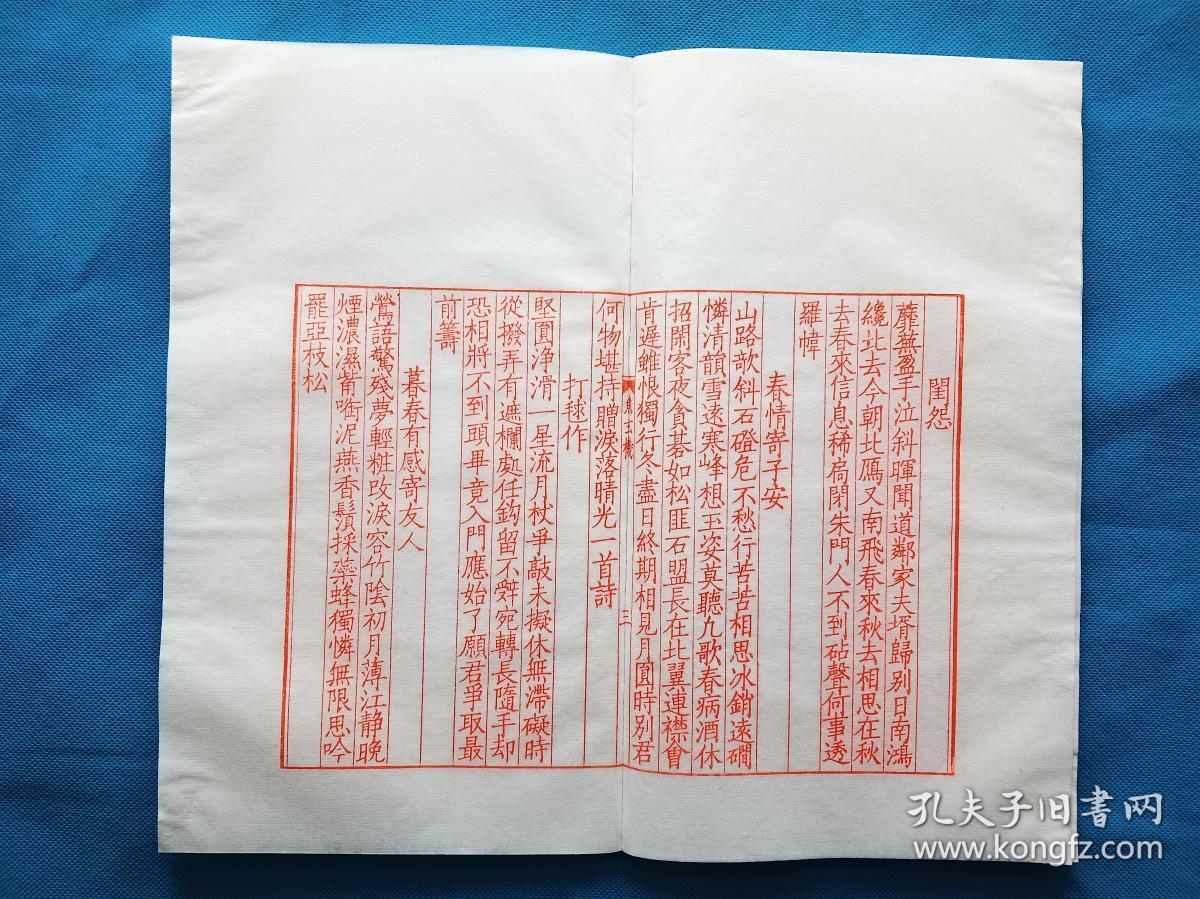 閨怨
蘼蕪盈手泣斜暉聞道鄰家夫壻歸別日南鴻
纔北去今朝北鴈又南飛春來秋去相思在秋
去春來信息稀扃閉朱門人不到砧聲何事透
羅幃
春情寄子安
山路欹斜石磴危不愁行苦苦相思冰銷遠磵
憐清韻雪遠寒峰想玉姿莫聽凡歌春病酒休
招閑客夜貪碁如松匪石盟長在比翼連襟會
肯遲雖恨獨行冬盡日終期相見月圓時別君
何物堪持贈淚落晴光一首詩
魚玄機
三
打毬作
堅圓淨滑一星流月杖爭敲未擬休無滯礙時
從撥弄有遮欄處任鉤留不辭宛轉長隨手却
恐相將不到頭畢竟入門應始了願君爭取最
前籌
暮春有感寄友人
鶯語驚殘夢輕粧改淚容竹陰初月薄江静晚
煙濃濕觜銜泥燕香鬚採蘂蜂獨憐無限思吟
罷亞枝松
孔夫子旧書网
www.kongfz.com